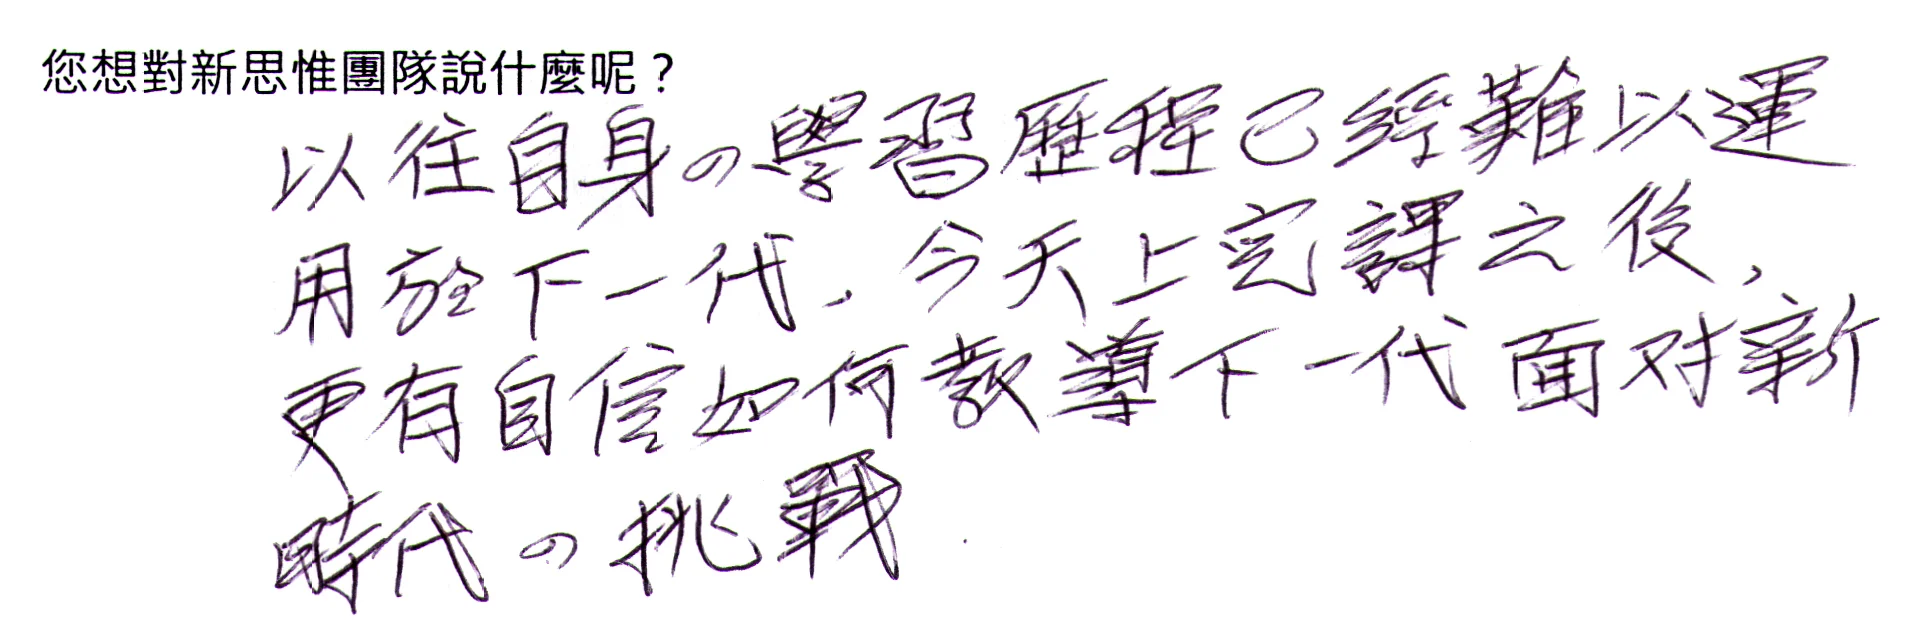 您想對新思惟團隊說什麼呢？
以往自身の學習歷程已經難以運
用於下一代．今天上完課之後，
更有自信如何教導下一代面对新
時代の挑戰．